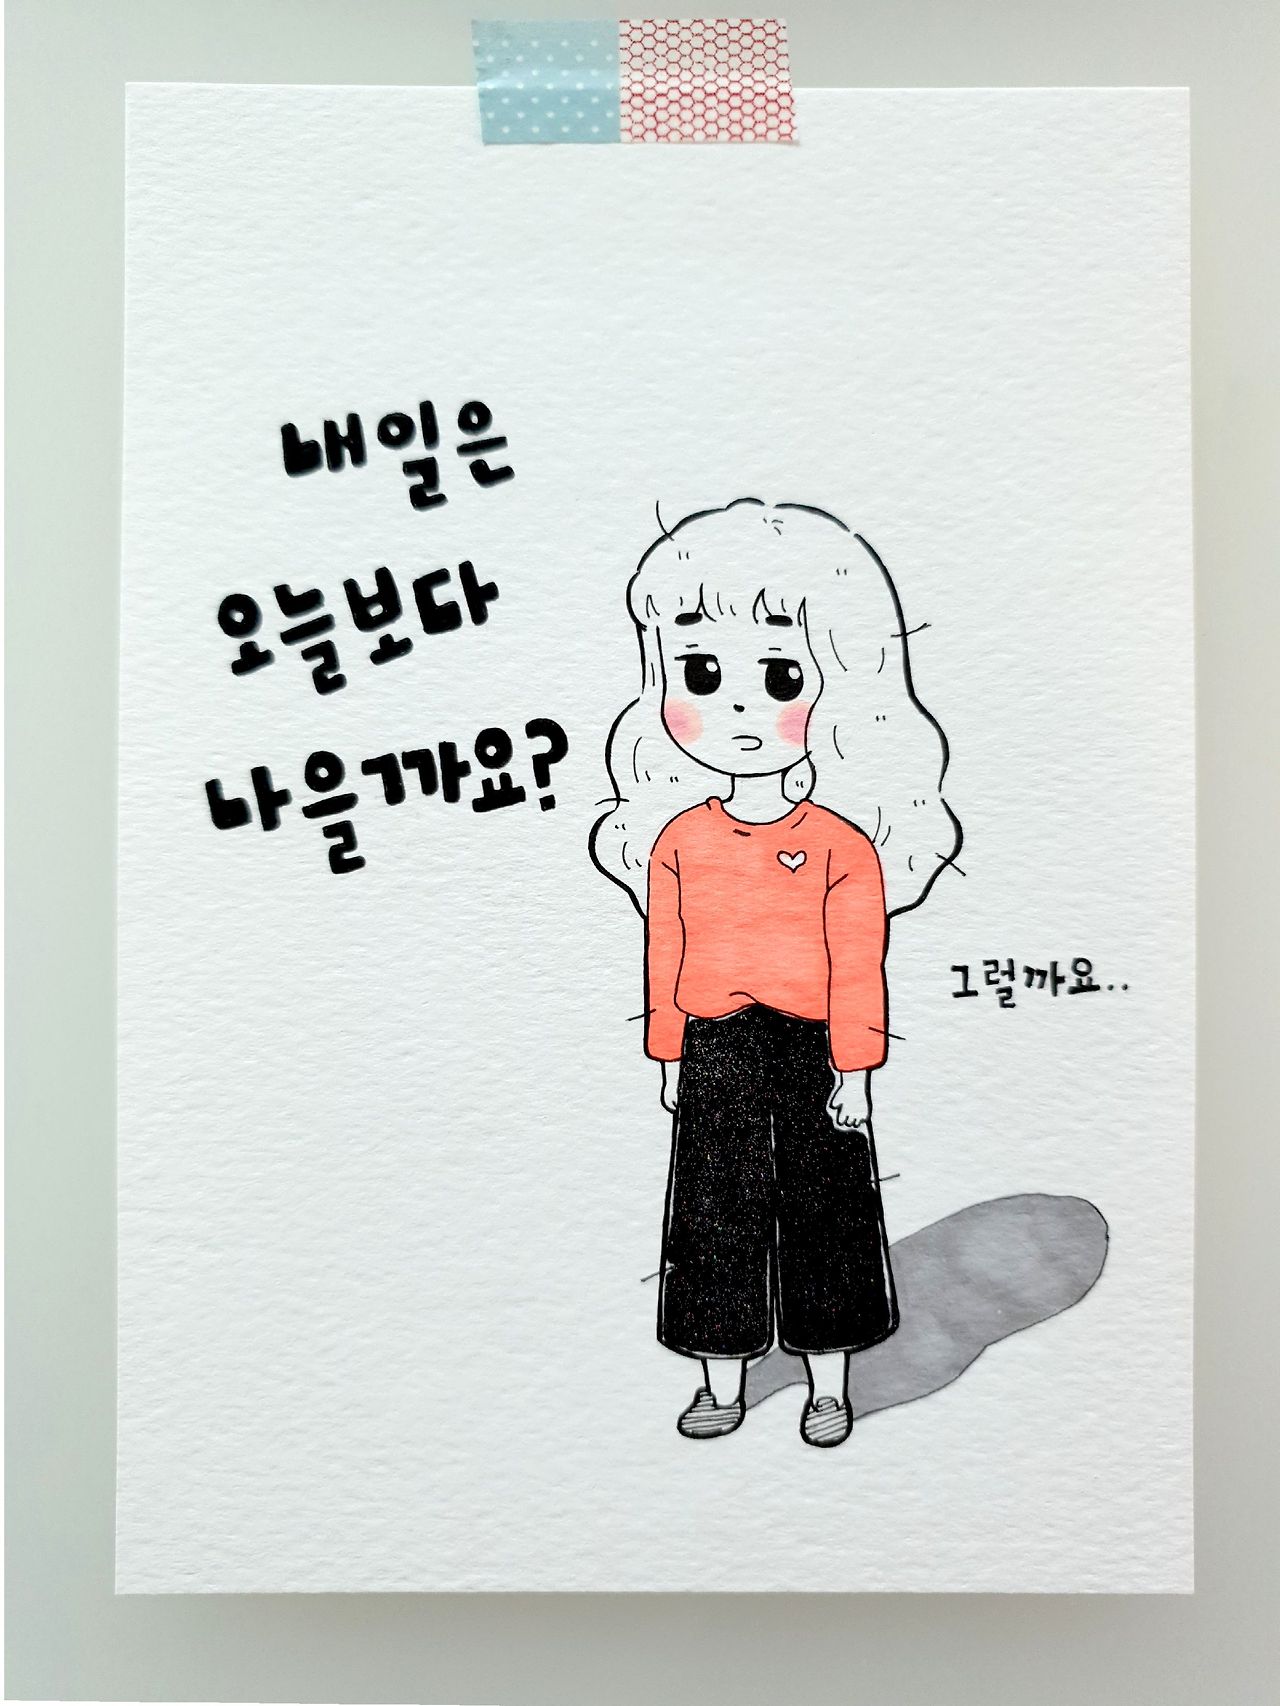 내일은
오늘보다
나을까요?
그럴까요..